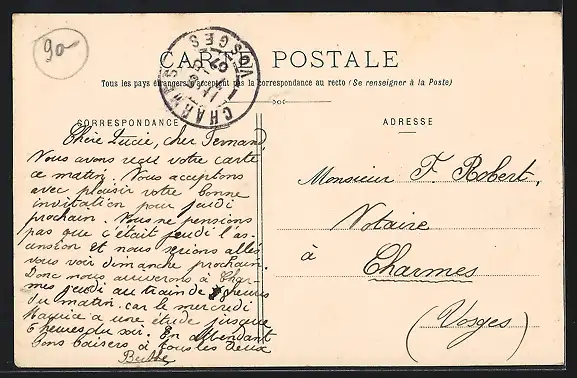 90
CARTE POSTALE
Tous les pays étrangers n'acceptent pas la correspondance au recto (Se renseigner à la Poste)
CHARMES
VOSGES
CORRESPONDANCE
Chère Lucie, cher Fernand,
Nous avons reçu votre carte
ce matin. Nous acceptons
avec plaisir votre bonne
invitation pour jeudi
prochain. Nous ne pensions
pas que c'était jeudi l'as-
cension et nous serions allés
vous voir dimanche prochain.
Donc nous arriverons à Char-
mes jeudi au train de heures
du matin. car le mercredi
a une étude jusque
6 heures du soir. En attendant
bons baisers à tous les deux
Berthe
ADRESSE
Monsieur F. Robert,
Notaire
à
Charmes
(Vosges)